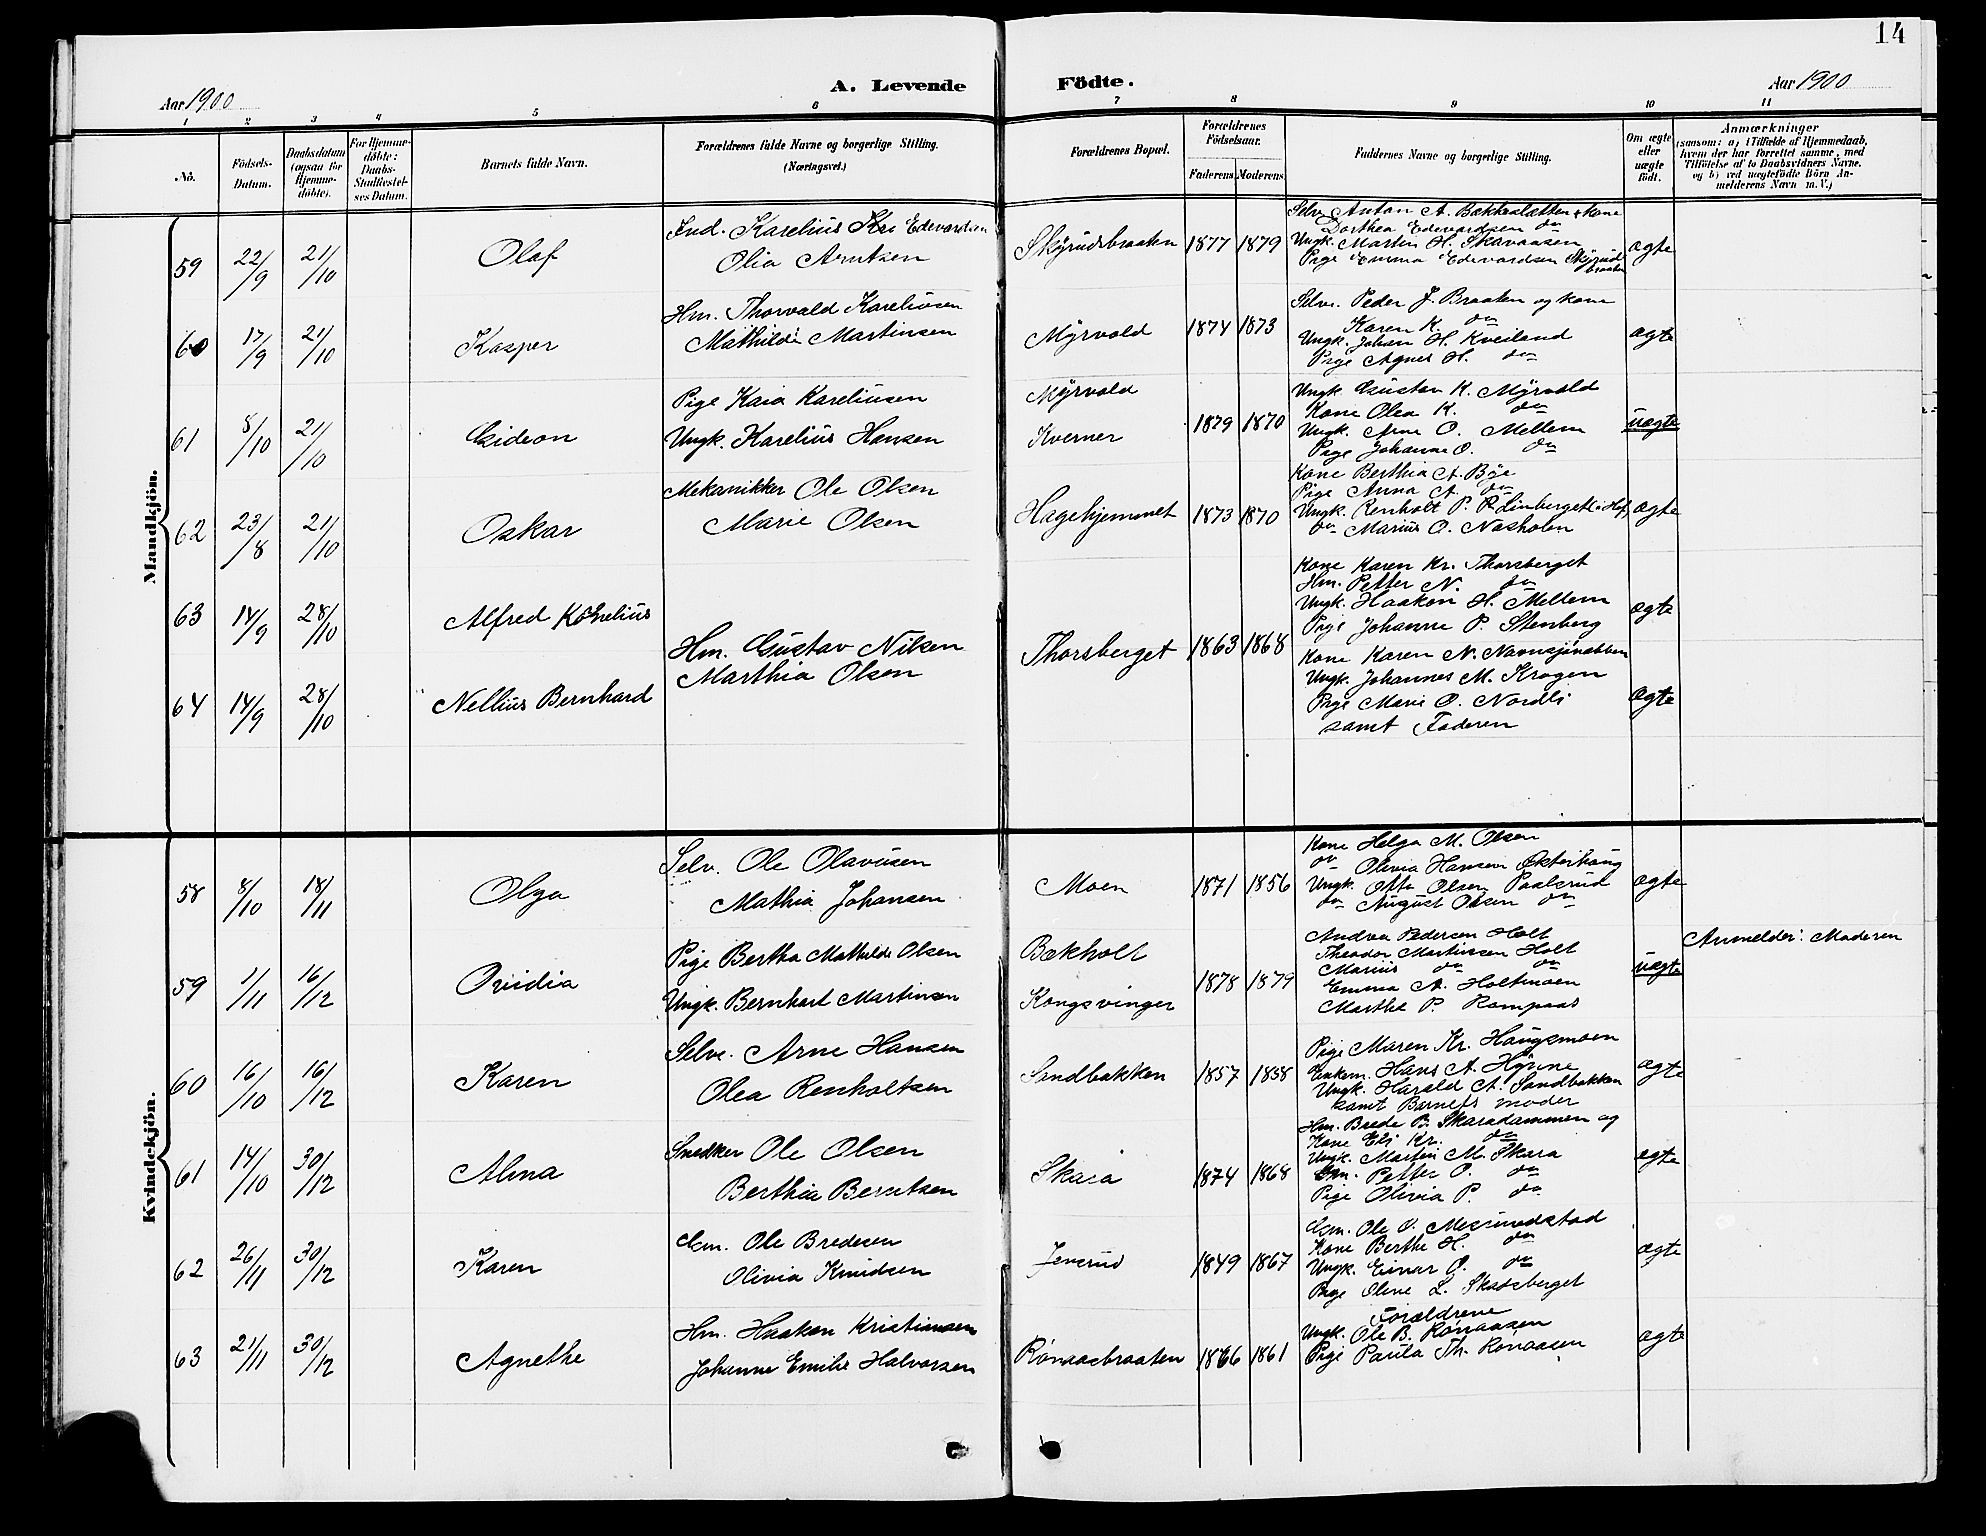 14
A. Levende Födte.
Aar 1900 Aar 1900
1 2 3 4 5 6 7 8 9 10 11
No. Födsels-Datum. Daabsdatum (ogsaa for Hjemmedöbte). For Hjemmedöbte: Daabs-Stadfæstelses Datum. Barnets fulde Navn. Forældrenes fulde Navne og borgerlige Stilling. (Næringsvei.) Forældrenes Bopæl. Forældrenes Födselsaar. Faderens. Moderens. Faddernes Navne og borgerlige Stilling. Om ægte eller uægte födt. Anmærkninger (saasom: a) i Tilfælde af Hjemmedaab, hvem der har forrettet samme, med Tilföielse af to Daabsvidners Navne. og b) ved uægtefödte Börn Anmelderens Navn m. V.)
Mandkjön.
59 22/9 21/10 Olaf
Ind. Karelius Edevardsen
Olia Arntsen
Skyrudsbraaten 1877 1879
Selv. Anton A. Bækkeslætten & kone
Dorthea Edevardsen do
Ungk. Martin H. Skavaasen
Pige Emma Edevardsen Skyrudbraaten
ægte
60 17/9 21/10 Kasper
Hm. Thorvald Kareliusen
Mathilde Martinsen
Myrvold 1874 1873
Selve. Peder J. Braaten og kone
Karen K. do
Ungk. Johan H. Kveiland
Pige Agnes H. do
ægte
61 8/10 21/10 Gideon
Pige Kaia Kareliusen
Ungk. Karelius Hansen
Myrvold
Kverner
1879 1870
Ungk. Gustav K. Myrvold
Kone Olea K. do
Ungk. Arne O. Mellem
Pige Johanne O. do
uægte
62 23/8 21/10 Oskar
Mekanikker Ole Olsen
Marie Olsen
Hagehjemmet 1873 1870
Kone Berthia A. Bye
Pige Anna A. do
Ungk. Renholt P. Linberget (i Hof)
do Marius O. Næsholen
ægte
63 14/9 28/10 Alfred Kornelius
64 14/9 28/10 Nellius Bernhard
Hm. Gustav Nilsen
Marthia Olsen
Thorsberget 1863 1868
Kone Karen Kr. Thorsberget
Hm. Petter N. do
Ungk. Haakon H. Mellem
Pige Johanne P. Stenberg
ægte
Kone Karen N. Navnsjønabben
Ungk. Johannes M. Krogen
Pige Marie O. Nordli
samt Faderen
ægte
Kvindekjön.
58 8/10 18/11 Olga
Selv. Ole Olavusen
Mathia Johansen
Moen 1871 1856
Kone Helga M. Olsen
do Olivia Hansen Østerhaug
Ungk. Otto Olsen Paalsrud
do August Olsen do
ægte
59 1/11 16/12 Ovidia
Pige Bertha Mathilde Olsen
Ungk. Bernhart Martinsen
Bækholt
Kongsvinger
1878 1879
Andrea Pedersen Holt
Theodor Martinsen Holt
Marius do do
Emma A. Holtmoen
Marthe P. Rompaas
uægte
Anmelder: Moderen
60 16/10 16/12 Karen
Selve. Arne Hansen
Olea Renholtsen
Sandbakken 1857 1858
Pige Maren Kr. Haugsmoen
Enkem. Hans A. Hynne
Ungk. Harald A. Sandbakken
samt Barnets moder
ægte
61 14/10 30/12 Alma
Snedker Ole Olsen
Berthia Berntsen
Skara 1874 1868
Hm. Brede B. Skaradammen og
Kone Eli Kr. do
Ungk. Martin M. Skara
Gm. Petter O. do
Pige Olivia P. do
ægte
62 26/11 30/12 Karen
Gm. Ole Bredesen
Olivia Knudsen
Jensrud 1849 1867
Gm. Ole O. Mesmedstad
Kone Berthe H. do
Ungk. Einar O. do
Pige Oline L. Skadsberget
ægte
63 21/11 30/12 Agnethe
Hm. Haakon Kristiansen
Johanne Emilie Halvorsen
Rønaasbraaten 1866 1861
Forældrene
Ungk. Ole B. Rønaasen
Pige Paula Th. Rønaasen
ægte